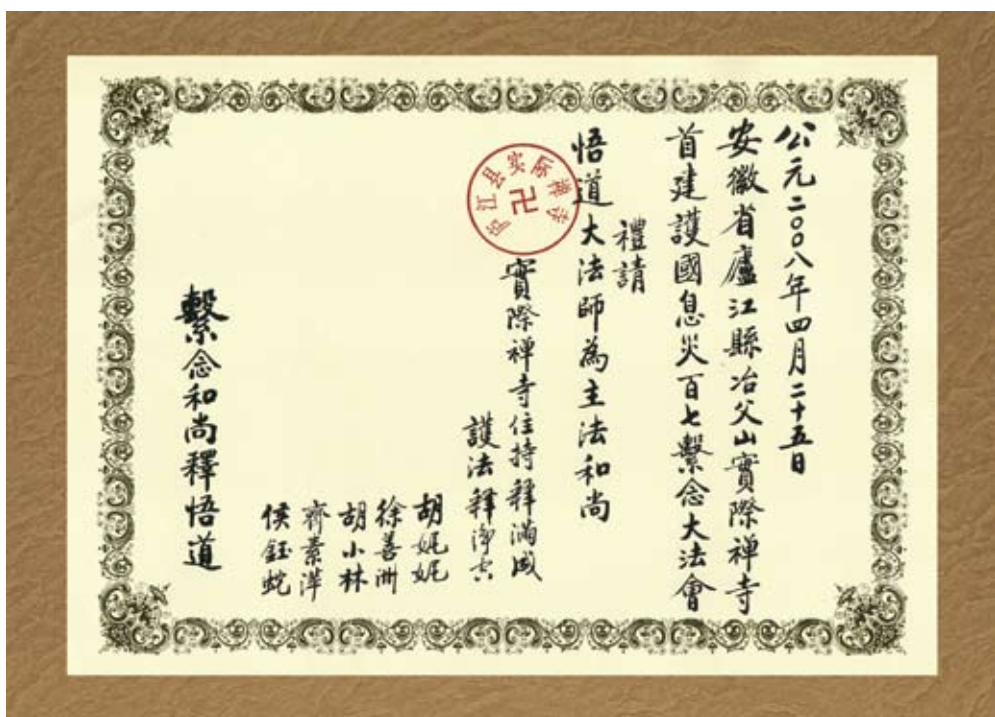 公元二〇〇八年四月二十五日
安徽省廬江縣冶父山實際禪寺
首建護國息災百七繫念大法會
禮請
悟道大法師為主法和尚
庐江县实际禅寺
卍
實際禪寺住持釋滿成
護法釋淨空
胡妮妮
徐善洲
胡小林
齊素萍
侯鈺
繫念和尚釋悟道